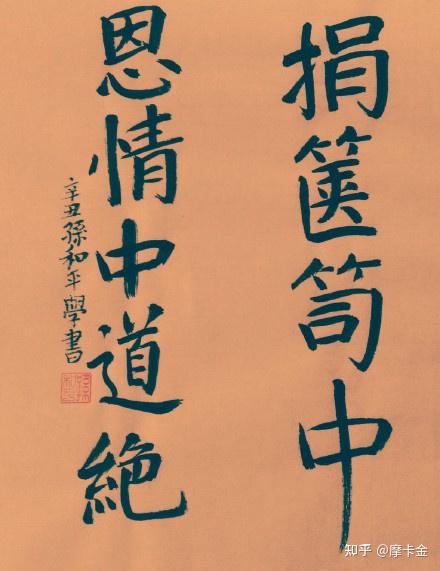 捐篋笥中
恩情中道絶
辛丑孫和平學書
知乎 @摩卡金